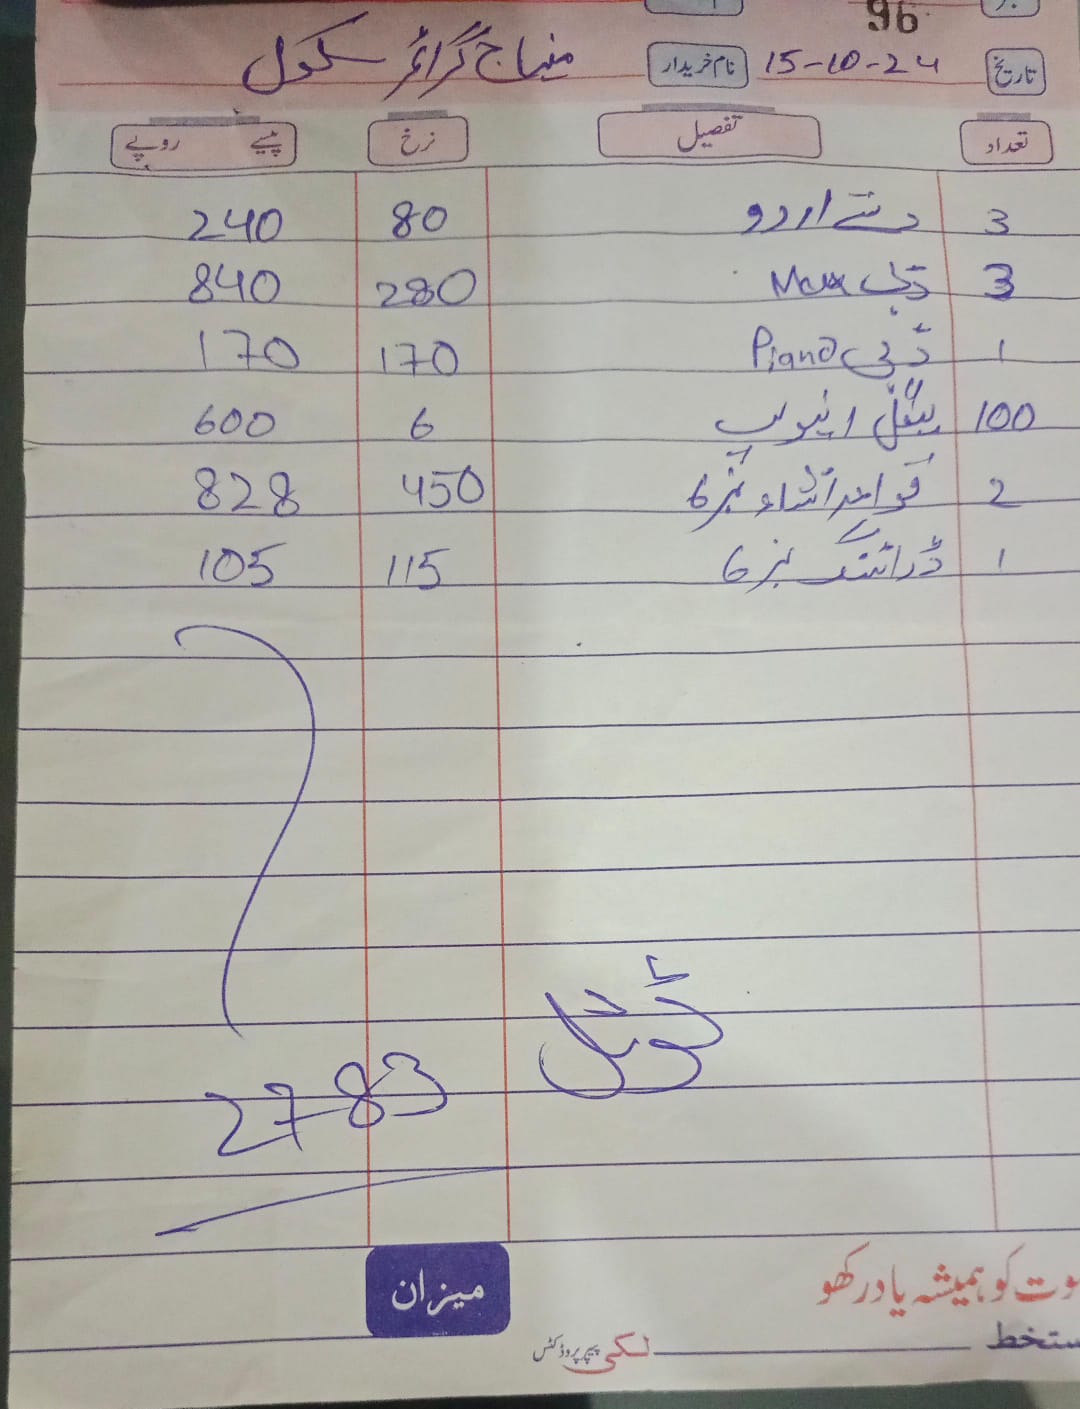 96
تاریخ 15-10-24 نام خریدار منہاج گرائمر سکول
تعداد تفصیل نرخ پیسے روپے
3 دستے اردو 80 240
3 ڈبی Max 280 840
1 ڈبی Piano 170 170
100 6 600
2 قواعد انشاء نمبر 6 450 828
1 ڈرائنگ نمبر 6 115 105
ٹوٹل 2783
میزان
موت کو ہمیشہ یاد رکھو
دستخط
لکی پیپر پروڈکٹس